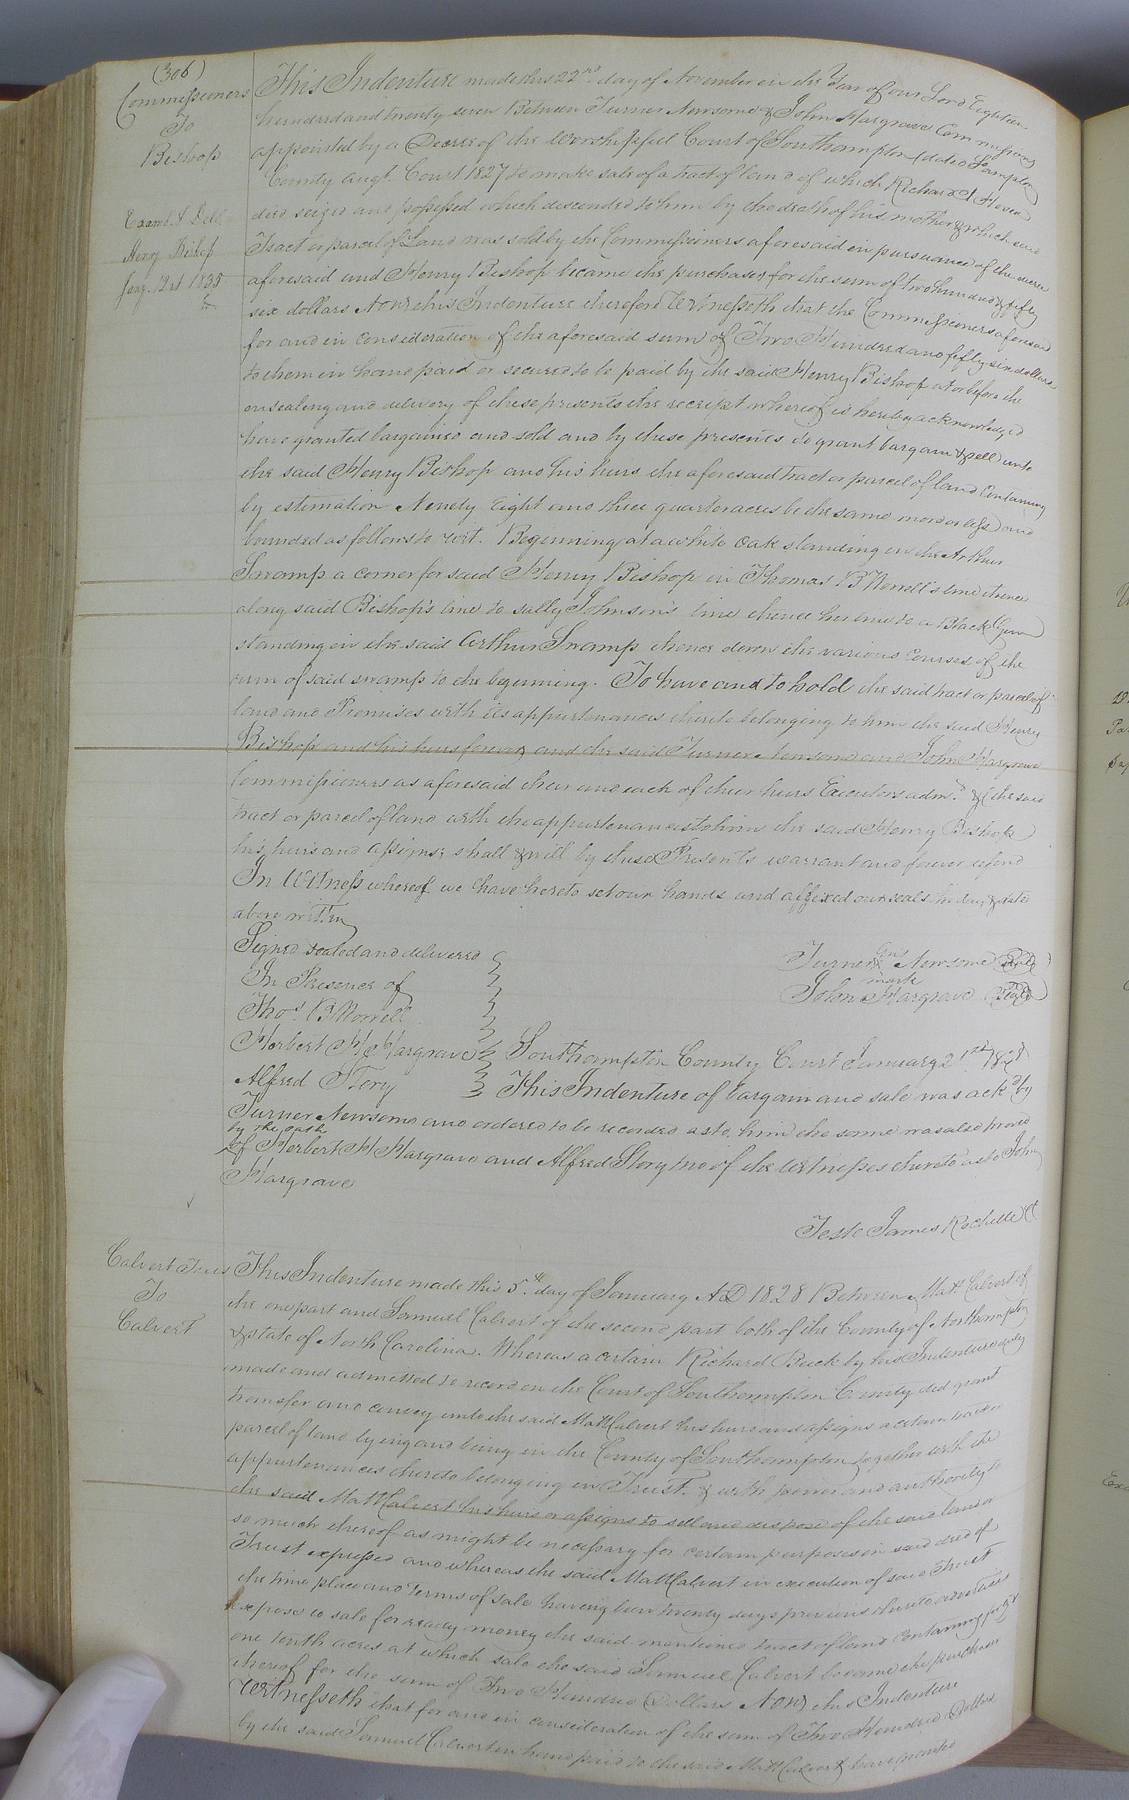 (306)
Commissioners
To
Bishop
Examd. & Deld
Henry Bishop
Jany. 12th 1835
This Indenture made this 22nd day of November in the Year of our Lord Eighteen
hundred and twenty seven Between Turner Newsome & John Hargrave Commissioners
appointed by a Decree of the Worshipful Court of Southampton (dated Southampton
County Augt. Court 1827) to make sale of a tract of land of which Richard
died seized and possessed which descended to him by the death of his mother & which said
Tract or parcel of Land was sold by the Commissioners aforesaid in pursuance of the decree
aforesaid and Henry Bishop became the purchaser for the sum of two hundred & fifty
six dollars Now this Indenture therefore Witnesseth that the Commissioners aforesaid
for and in consideration of the aforesaid sum of Two Hundred and fifty six dollars
to them in hand paid or secured to be paid by the said Henry Bishop at or before the
ensealing and delivery of these presents the receipt whereof is hereby acknowledged
have granted bargained and sold and by these presents do grant bargain & sell unto
the said Henry Bishop and his heirs the aforesaid tract or parcel of land Containing
by estimation Ninety Eight and three quarter acres be the same more or less and
bounded as follows to wit. Beginning at a white Oak standing in the Arthur
Swamp a corner for said Henry Bishop in Thomas B Worrell's line thence
along said Bishop's line to Sally Johnson's line thence her line to a Black Gum
standing in the said Arthur Swamp thence down the various courses of the
run of said swamp to the beginning. To have and to hold the said tract or parcel of
land and Premises with its appurtenances thereto belonging to him the said Henry
Bishop and his heirs forever and the said Turner Newsome and John Hargrave
Commissioners as aforesaid their and each of their heirs Executors admrs. &c the said
tract or parcel of land with the appurtenances to him the said Henry Bishop
his heirs and assigns shall & will by these Presents warrant and forever defend
In Witness whereof we have hereto set our hands and affixed our seals the day & date
above written
Signed sealed and delivered
In Presence of
Thos B Worrell
Herbert H Hargrave
Alfred Story
Turner his x mark Newsome (Seal)
John Hargrave (Seal)
Southampton County Court January 21st 1828
This Indenture of bargain and sale was ackd by
Turner Newsome and ordered to be recorded as to him the same was also proved
by the oath
of Herbert H Hargrave and Alfred Story two of the Witnesses thereto as to John
Hargrave
Teste James Rochelle Ct
Calvert Trus
To
Calvert
This Indenture made this 5th day of January AD 1828 Between Matt. Calvert of
the one part and Samuel Calvert of the second part both of the County of Northampton
& state of North Carolina. Whereas a certain Richard Buck by his Indenture duly
made and admitted to record in the Court of Southampton County did grant
transfer and convey unto the said Matt Calvert his heirs and assigns a certain tract or
parcel of land lying and being in the County of Southampton together with the
appurtenances thereto belonging in Trust. & with power and authority to
the said Matt Calvert his heirs or assigns to sell and dispose of the said land or
so much thereof as might be necessary for certain purposes in said deed of
Trust expressed and whereas the said Matt Calvert in execution of said Trust
the time place and terms of sale having been twenty days previous thereto advertised
expose to sale for ready money the said mentioned tract of land containing
one tenth acres at which sale the said Samuel Calvert became the purchaser
thereof for the sum of Two Hundred Dollars Now this Indenture
Witnesseth that for and in consideration of the sum of Two Hundred Dollars
by the said Samuel Calvert in hand paid to the said Matt Calvert have granted